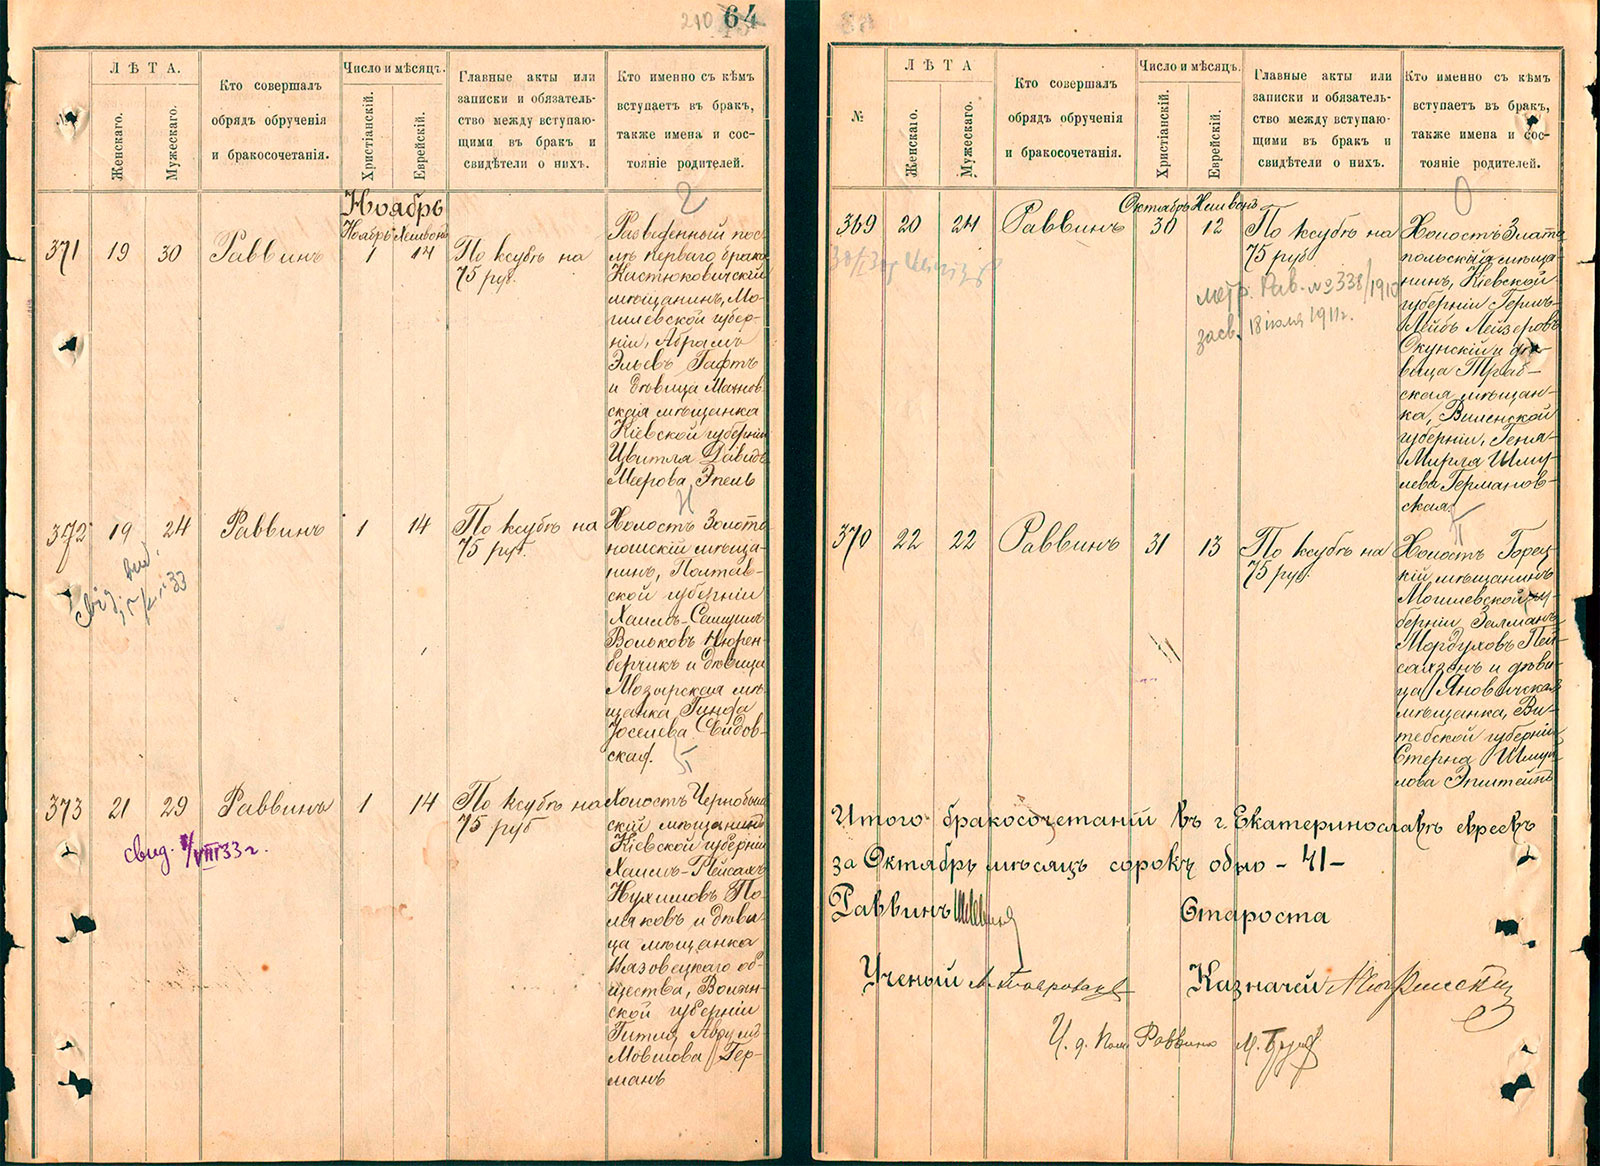 210 64
ЛѢТА.
Женскаго.
Мужескаго.
Кто совершалъ
обрядъ обрученія
и бракосочетанія.
Число и мѣсяцъ.
Христіанскій.
Еврейскій.
Главные акты или
записки и обязатель-
ство между вступаю-
щими въ бракъ и
свидѣтели о нихъ.
Кто именно съ кѣмъ
вступаетъ въ бракъ,
также имена и сос-
тояніе родителей.
Ноябрь
2
371 19 30 Раввинъ
Ноябрь Хешвонъ
1 14
По ксубѣ на
75 руб.
Разведенный пос-
лѣ перваго брака
Костюковичскій
мѣщанинъ, Мо-
гилевской губер-
ніи, Абрамъ
Эльевъ Гафтъ
и дѣвица Махнов
ская мѣщанка
Кіевской губерніи
Цвитля Давидъ
Меерова Эпель
Н
372 19 24 Раввинъ 1 14
По ксубѣ на
75 руб.
Холостъ Золото
ношскій мѣща-
нинъ, Полтав-
ской губерніи
Хаимъ-Самуилъ
Вольковъ Нюрен-
берчикъ и дѣвица
Мозырская мѣ-
щанка Гинда
Іоселева Сыдов-
ская.
П
373 21 29 Раввинъ 1 14
По ксубѣ на
75 руб
свид. 8/VIII 33 г.
Холостъ Чернобыль
скій мѣщанинъ
Кіевской губерніи
Хаимъ-Пейсахъ
Нухимовъ По-
ляковъ и дѣви-
ца мѣщанка
Назовецкаго об-
щества, Волын-
ской губерніи
Гитля Абрумъ
Мовшова Гер-
манъ
№
ЛѢТА
Женскаго.
Мужескаго.
Кто совершалъ
обрядъ обрученія
и бракосочетанія.
Число и мѣсяцъ.
Христіанскій.
Еврейскій.
Главные акты или
записки и обязатель-
ство между вступаю-
щими въ бракъ и
свидѣтели о нихъ.
Кто именно съ кѣмъ
вступаетъ въ бракъ,
также имена и сос-
тояніе родителей.
О
369 20 24 Раввинъ
Октябрь Хешвонъ
30 12
По ксубѣ на
75 руб
метр. Рав. № 338/1910
засв. 18 іюля 1911 г.
Холостъ Злато
польскій мѣща-
нинъ, Кіевской
губерніи Герш-
Лейбъ Лейзеровъ
Окунскій и дѣ-
вица Траб-
ская мѣщан-
ка, Виленской
губерніи, Геня-
Мирля Шму-
лева Германов-
ская.
П
370 22 22 Раввинъ 31 13
По ксубѣ на
75 руб.
Холостъ Горец-
кій мѣщанинъ
Могилевской гу-
берніи Залманъ
Мордуховъ Пей-
сахзонъ и дѣви-
ца Яновичская
мѣщанка, Ви-
тебской губерніи
Стерна Шму-
лова Эпштейнъ
Итого бракосочетаній въ г. Екатеринославѣ евреевъ
за Октябрь мѣсяцъ сорокъ одно - 41 -
Раввинъ Староста
Ученый Казначей
И. д. Пом. Раввина М.